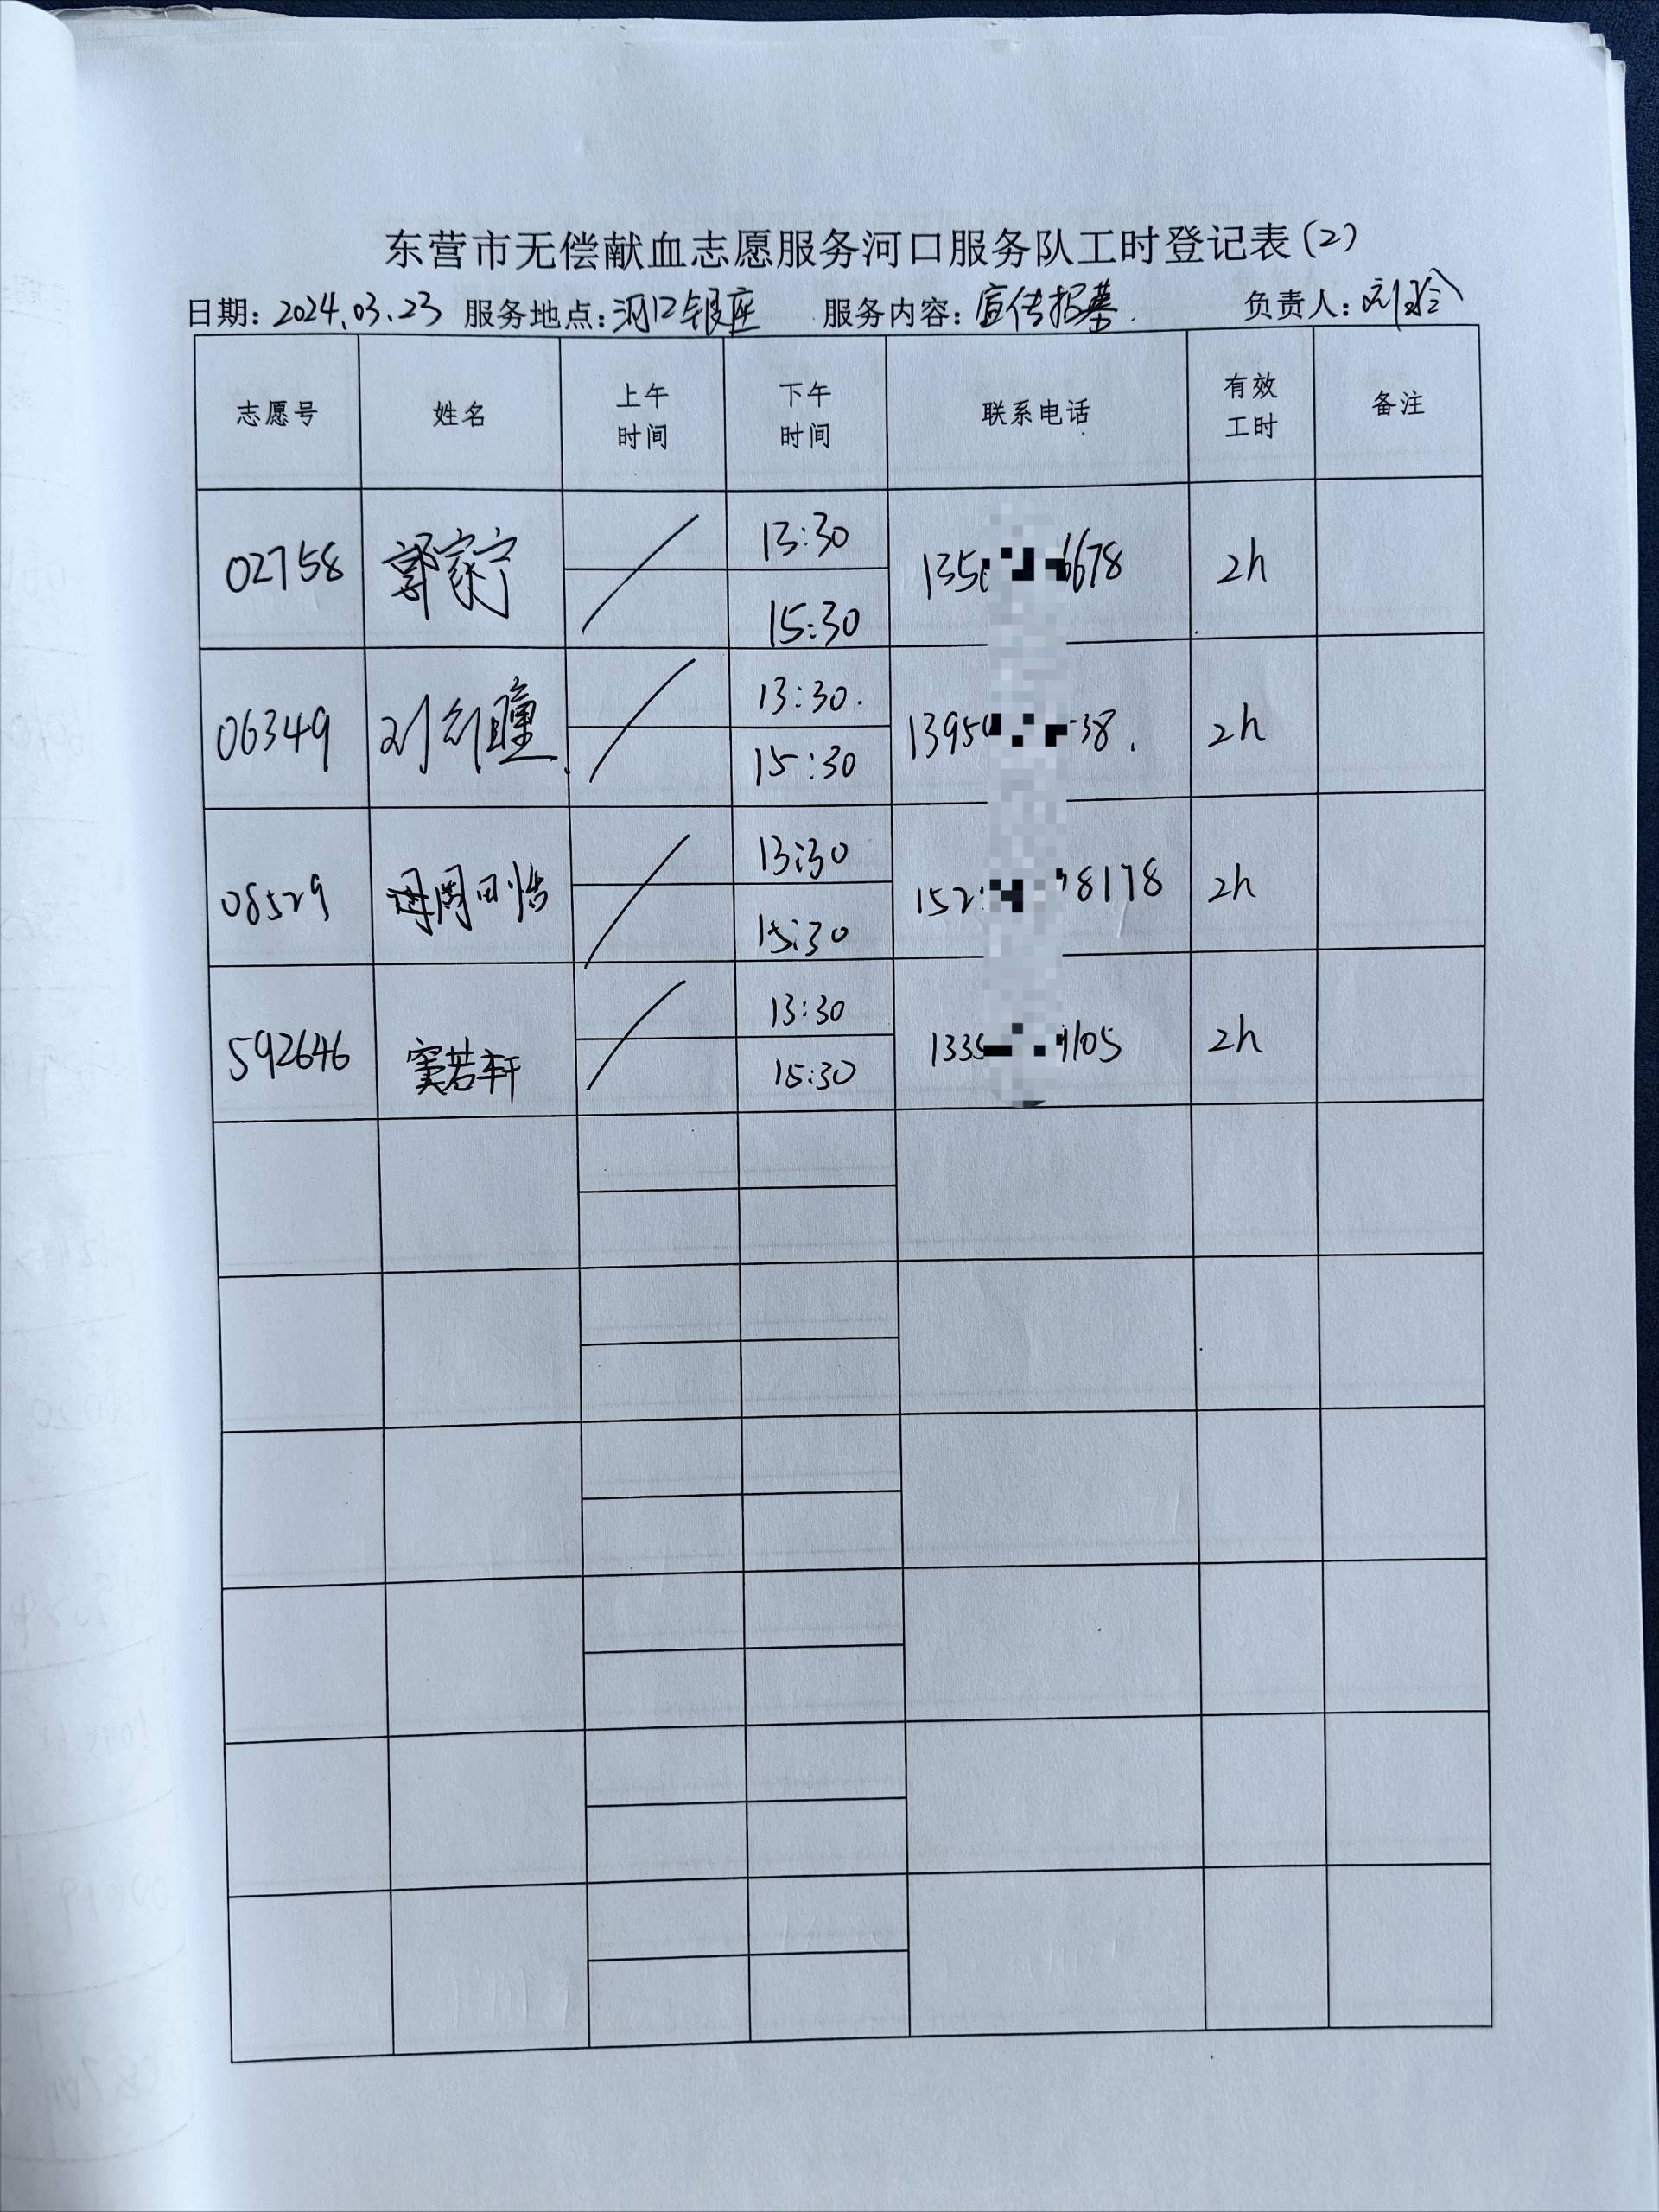 东营市无偿献血志愿服务河口服务队工时登记表(2)
日期: 2024.03.23 服务地点: 河口银座 服务内容: 宣传招募. 负责人: 刘
志愿号 姓名 上午时间 下午时间 联系电话 有效工时 备注
02758 郭家宁 / 13:30 15:30 135 6678 2h
06349 刘 瞳 / 13:30. 15:30 1395 38. 2h
08529 周田恬 / 13:30 15:30 152 8178 2h
592646 窦若轩 / 13:30 15:30 133 105 2h